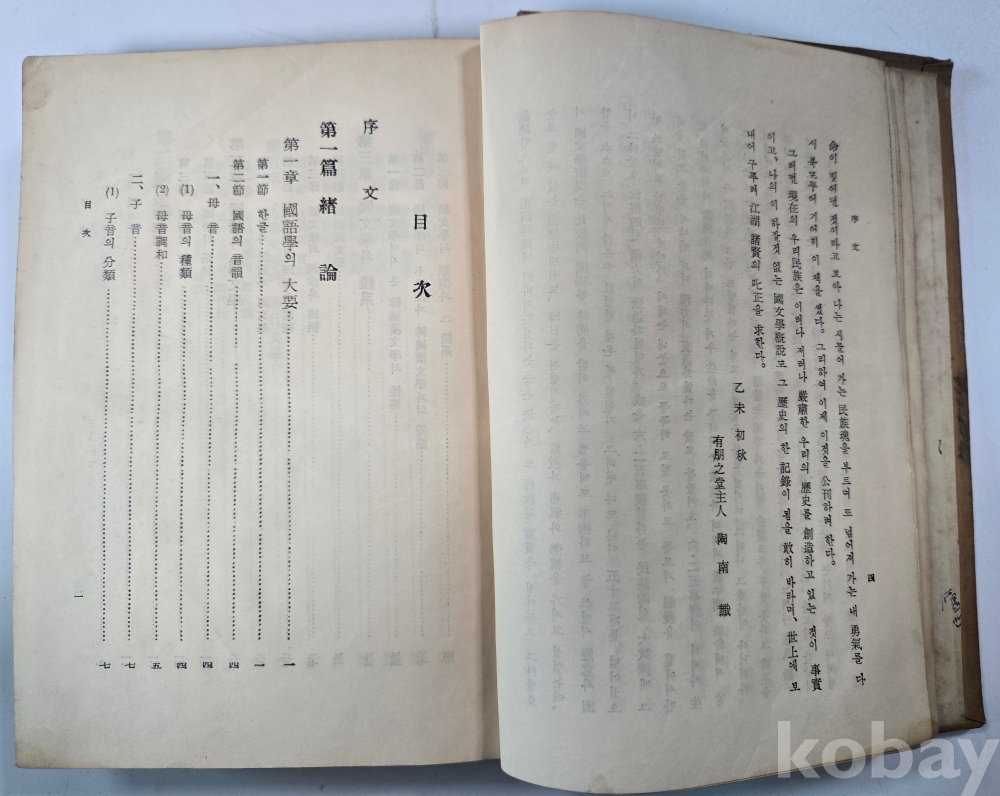 序文
四
命이 있어면 것이라고 보아 나는 시들어 가는 民族魂을 부르며 또 넘어져 가는 내 勇氣를 다
시 북도두어 기어히 이 책을 썼다。그리하여 이제 이것을 公刊하려 한다。
그러면 現在의 우리民族은 이러나 저러나 嚴肅한 우리의 歷史를 創造하고 있는 것이 事實
이고、나의 이 하잘것 없는 國文學槪說도 그 歷史의 한 記錄이 됨을 敢히 바라며、世上에 보
내어 구투려 江湖 諸賢의 叱正을 求한다。
乙未 初秋
有朋之堂主人 陶南 識
目次
序文
第一篇 緖論
第一章 國語學의 大要……一
第一節 한글……一
第二節 國語의 音韻……四
一、母音……四
(1) 母音의 種類……四
(2) 母音調和……五
二、子音……七
(1) 子音의 分類……七
目次
一
kobay